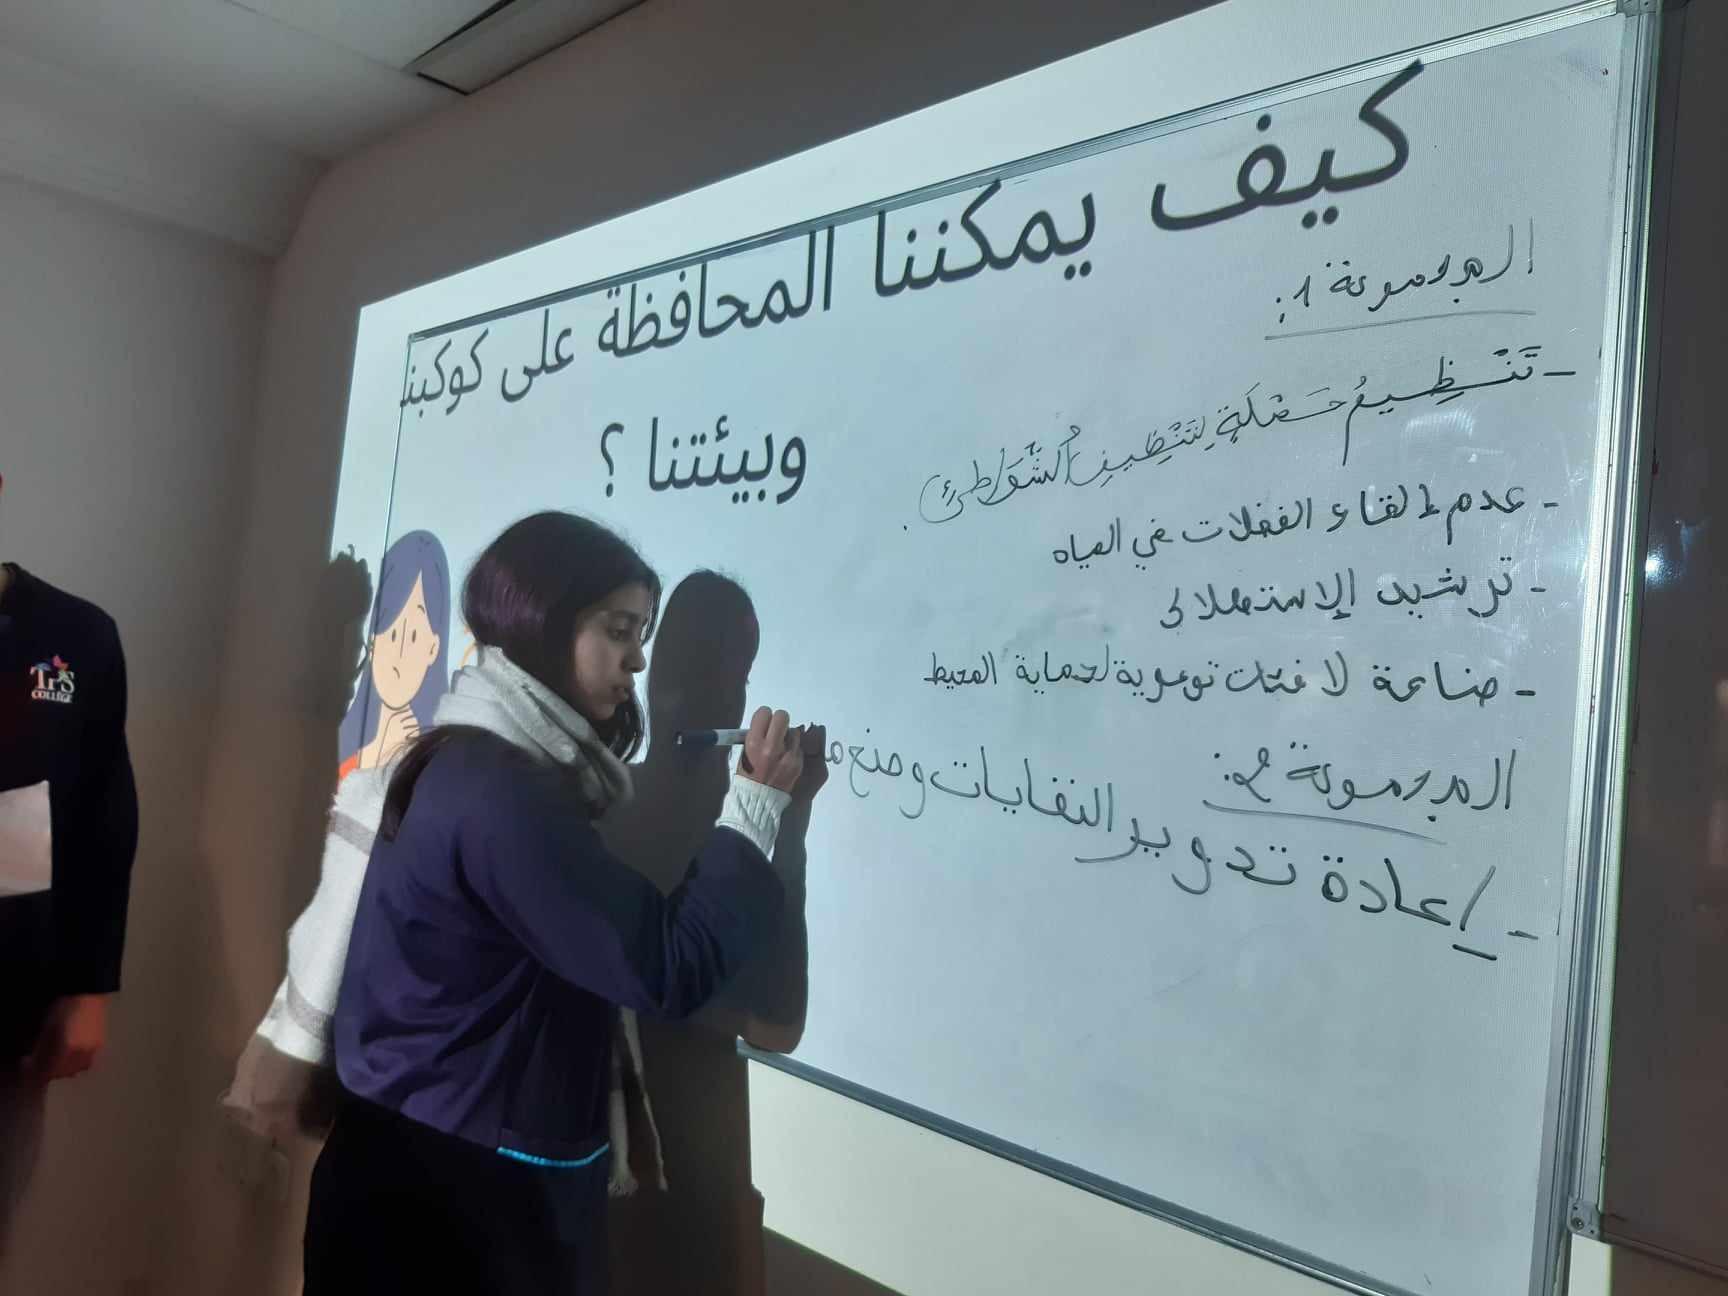 كيف يمكننا المحافظة على كوكبنا
وبيئتنا ؟
المجموعة 1:
- تَنْظِيمُ حَمْلَةٍ لِتَنْظِيفِ الشَّوَاطِئِ.
- عدم إلقاء الفضلات في المياه
- ترشيد الإستهلاك
- صناعة لافتات توعوية لحماية المحيط
المجموعة 2:
- إعادة تدوير النفايات وصنع م
TPS
COLLÈGE